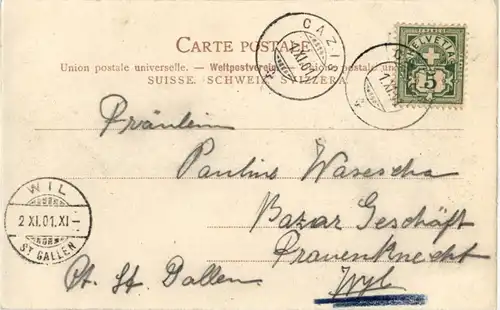 CARTE POSTALE.
Union postale universelle. — Weltpostverein. — Unione postale universale.
SUISSE. SCHWEIZ. SVIZZERA.
CAZIS
1.XI.01
HELVETIA
5
1.XI.01
Fräulein
Pauline Wasescha
Bazar Geschäft
Frauenknecht
Wyl
Ct. St. Gallen.
WIL
2 XI.01.XI
ST GALLEN